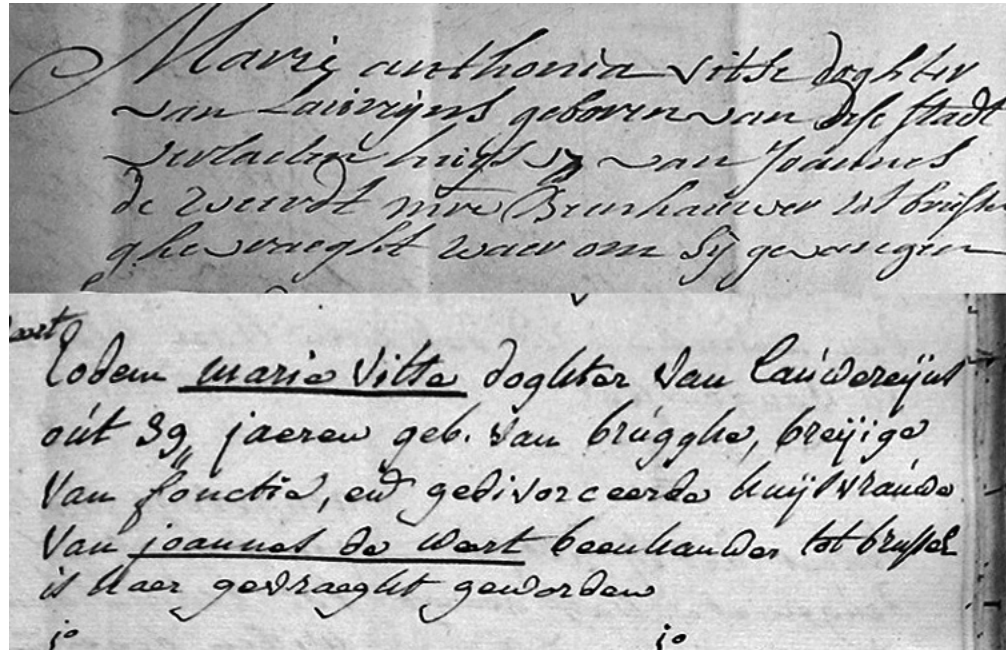 Marie anthonia vitse doghter
van Lauwryns geboren van dese stadt
verlaeten huijs v: van Joannes
de weerdt mre Beenhauwer tot brussel
ghevraeght waer om sij gevangen
Eodem marie Vitse doghter van Lauwereijns
oút 39 jaeren geb. van brúgghe, breijige
van fonctie, en gedivorceerde huijsvraúwe
van joannes de wert beenhauwer tot brussel
is haer gevraeght geworden
io io